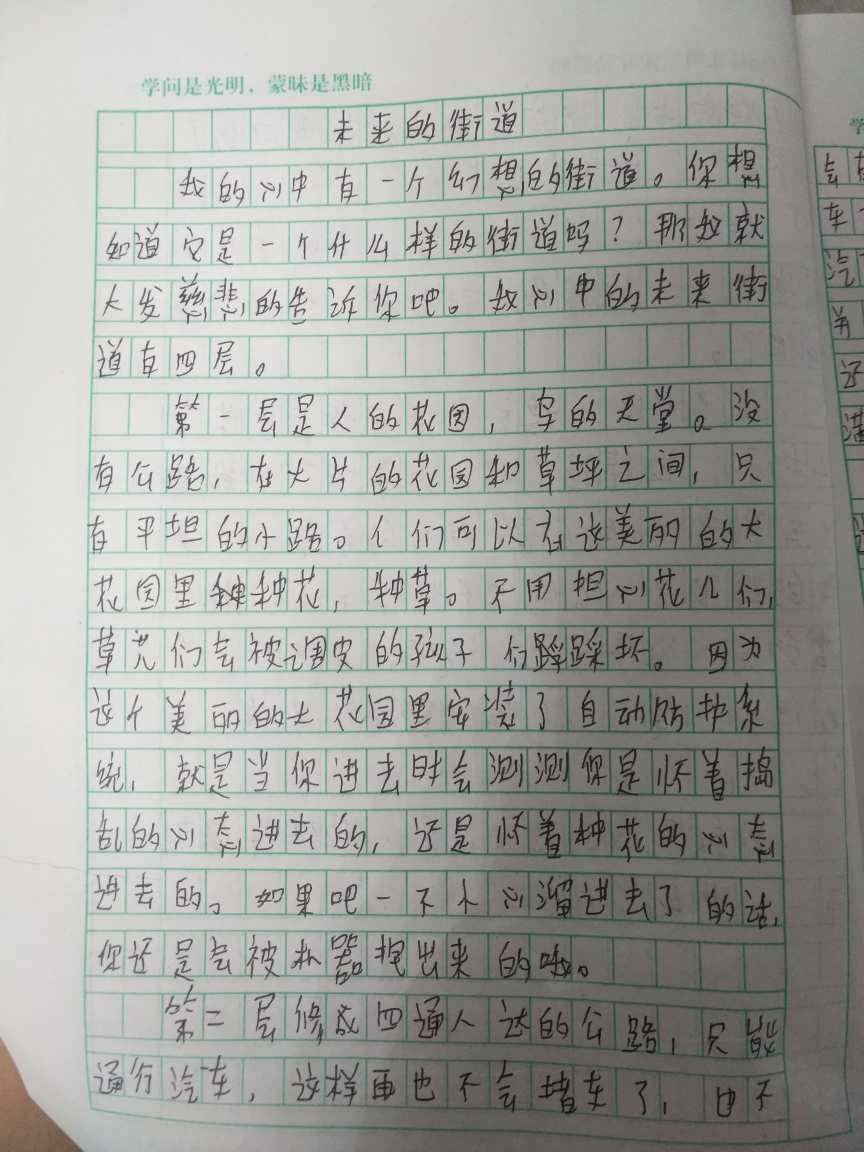 学问是光明，蒙昧是黑暗
未来的街道
我的心中有一个幻想的街道。你想
知道它是一个什么样的街道吗？那我就
大发慈悲的告诉你吧。我心中的未来街
道有四层。
第一层是人的花园，鸟的天堂。没
有公路，在大片的花园和草坪之间，只
有平坦的小路。人们可以在这美丽的大
花园里种种花，种草。不用担心花儿们，
草儿们会被调皮的孩子们踩踩坏。因为
这个美丽的大花园里安装了自动防护系
统，就是当你进去时会测测你是怀着捣
乱的心态进去的，还是怀着种花的心态
进去的。如果吧一不小心溜进去了的话，
你还是会被机器拽出来的哦。
第二层修成四通八达的公路，只能
通行汽车，这样再也不会堵车了，也不
学
会
车
汽
还
满